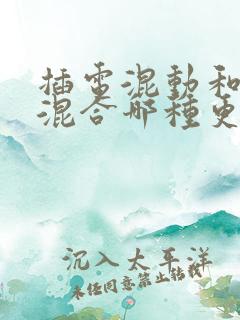 插電混動和
混合哪種更
沉入太平洋
未经同意禁止转载